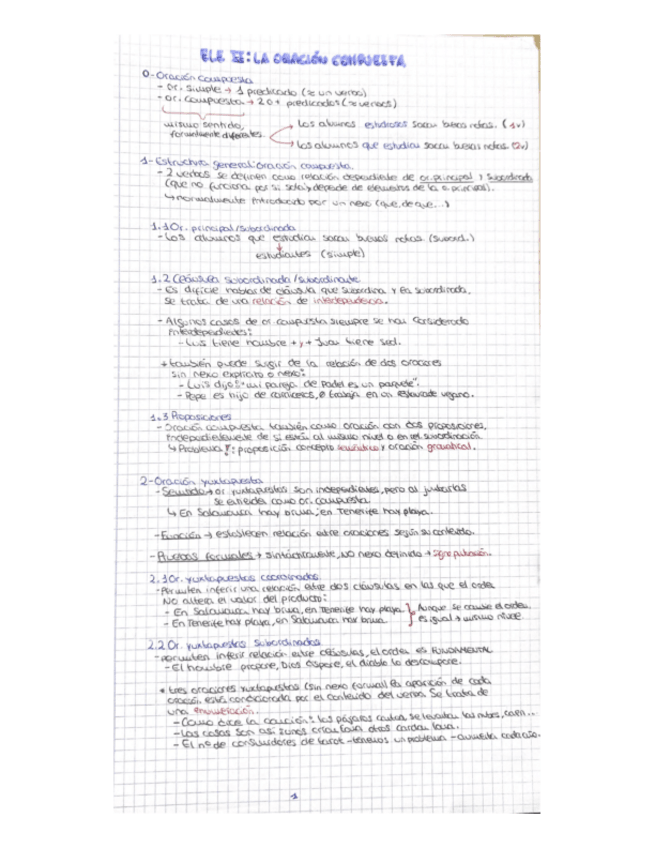 ELE II: LA ORACIÓN COMPUESTA
0-Oración compuesta
- Or. simple → 1 predicado (≈ un verbo)
- or. compuesta → 2 o + predicados (≈ verbos)
mismo sentido, formalmente diferentes
Los alumnos estudiosos sacan buenas notas. (1v)
Los alumnos que estudian sacan buenas notas. (2v)
1-Estructura general: oración compuesta.
- 2 verbos se definen como relación dependiente de or. principal y subordinada
(que no funciona por si sola, depende de elementos de la o. principal).
↳ normalmente introducido por un nexo (que, de que,...)
1.1 Or. principal/subordinada
- Los alumnos que estudian sacan buenas notas (subord.)
estudiantes (simple)
1.2 Cláusula subordinada/subordinante
- Es difícil hablar de cláusula que subordina y la subordinada,
se trata de una relación de interdependencia.
- Algunos casos de or. compuesta siempre se han considerado
interdependientes:
- Luis tiene hambre + y + Juan tiene sed.
+ también puede surgir de la relación de dos oraciones
sin nexo explícito o nexo:
- Luis dijo: "mi pareja de padel es un paquete".
- Pepe es hijo de carniceros, Ø trabaja en un restaurante vegano.
1.3 Proposiciones
- Oración compuesta también como oración con dos proposiciones,
independientemente de si están al mismo nivel o en rel. subordinación.
↳ Problema!: proposición concepto semántico y oración gramatical.
2-Oración yuxtapuesta
- Semántica → or. yuxtapuestas son independientes, pero al juntarlas
se entiende como or. compuesta
↳ En Salamanca hay bruma; en Tenerife hay playa.
- Función → establecen relación entre oraciones según su contenido.
- Pruebas formales → sintácticamente, no nexo definido → signo puntuación.
2.1 Or. yuxtapuestas coordinadas.
- Permiten inferir una relación entre dos cláusulas en las que el orden
NO altera el valor del producto:
- En Salamanca hay bruma, en Tenerife hay playa.
- En Tenerife hay playa, en Salamanca hay bruma
Aunque se cambie el orden, es igual → mismo nivel.
2.2 Or. yuxtapuestas subordinadas
- permiten inferir relación entre cláusulas, el orden es FUNDAMENTAL
- El hombre propone, Dios dispone, el diablo lo descompone.
* tres oraciones yuxtapuestas (sin nexo formal) la aparición de cada
oración está condicionada por el contenido del verbo. Se trata de
una enumeración.
- Como dice la canción: los pájaros cantan, se levantan las nubes, caen...
- Las cosas son así: unos crían lana otros cardan lana.
- El nº de consumidores de tarot - tenemos un problema - aumenta cada año.
1